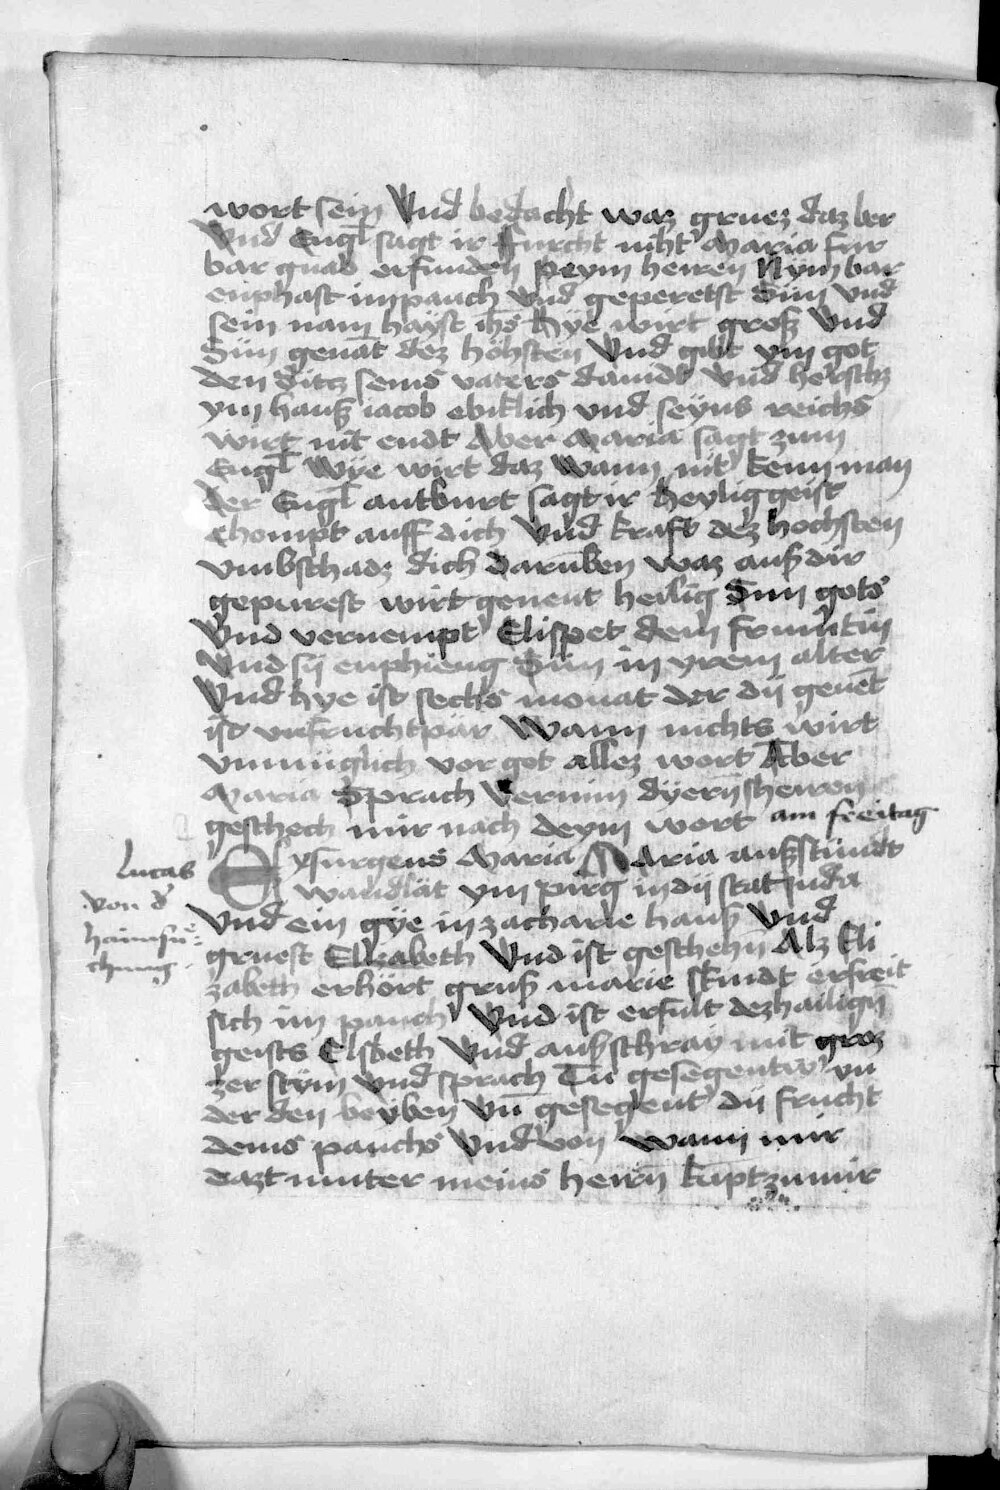 wort sein Und bedacht waz gruez daz ber
Und Engl sagt ir Furcht niht Maria fur
bar gnad erfunden peym herren Nym bar
enphast im pauch Und geperetst Sun Und
sein nam hayst ihs Hye wirt groß Und
Sun genāt dez höhsten Und gibt ym got
den sitz seins vaters dauidt Und herscht
ym hauß iacob ebiklich vnd seyns reichs
wirt nit endt Aber Maria sagt zum
Engl Wye wirt daz Wann nit kenn man
der Engl antburt sagt ir heylig geist
Chompt auff dich Und kraft dez hochsten
vmbschadz dich Daruben waz auß dir
gepurest wirt genent heilig Sun gots
Und vernempt Elispet dein freuntin
Und sy enphieng Sun in yrem alter
Und hye ist sechs monat der dy genēt
ist vnfruchtpar Wann nichts wirt
vnmüglich vor got allez wort Aber
Maria Sprach Vernim dyern herren
geschech mir nach deym wort am freitag
Exsurgens Maria Maria aufstundt
wandlät ym pirg in dy stat Juda
Und ein gye in zacharie hauß Und
gruest Elizabeth Und ist geschehn Alz Eli
zabeth erhört gruß marie kindt erfreit
sich im pauch Und ist erfült dez hailign
geists Elsbeth Und aufschray mit groz
zer stym Und sprach Tu gesegentw vn
der den beyben Un gesegent dy frucht
deins pauchs Und von Wann mir
dazt muter meins herrn kupt zu mir
Lucas
von d
haimsu
chung